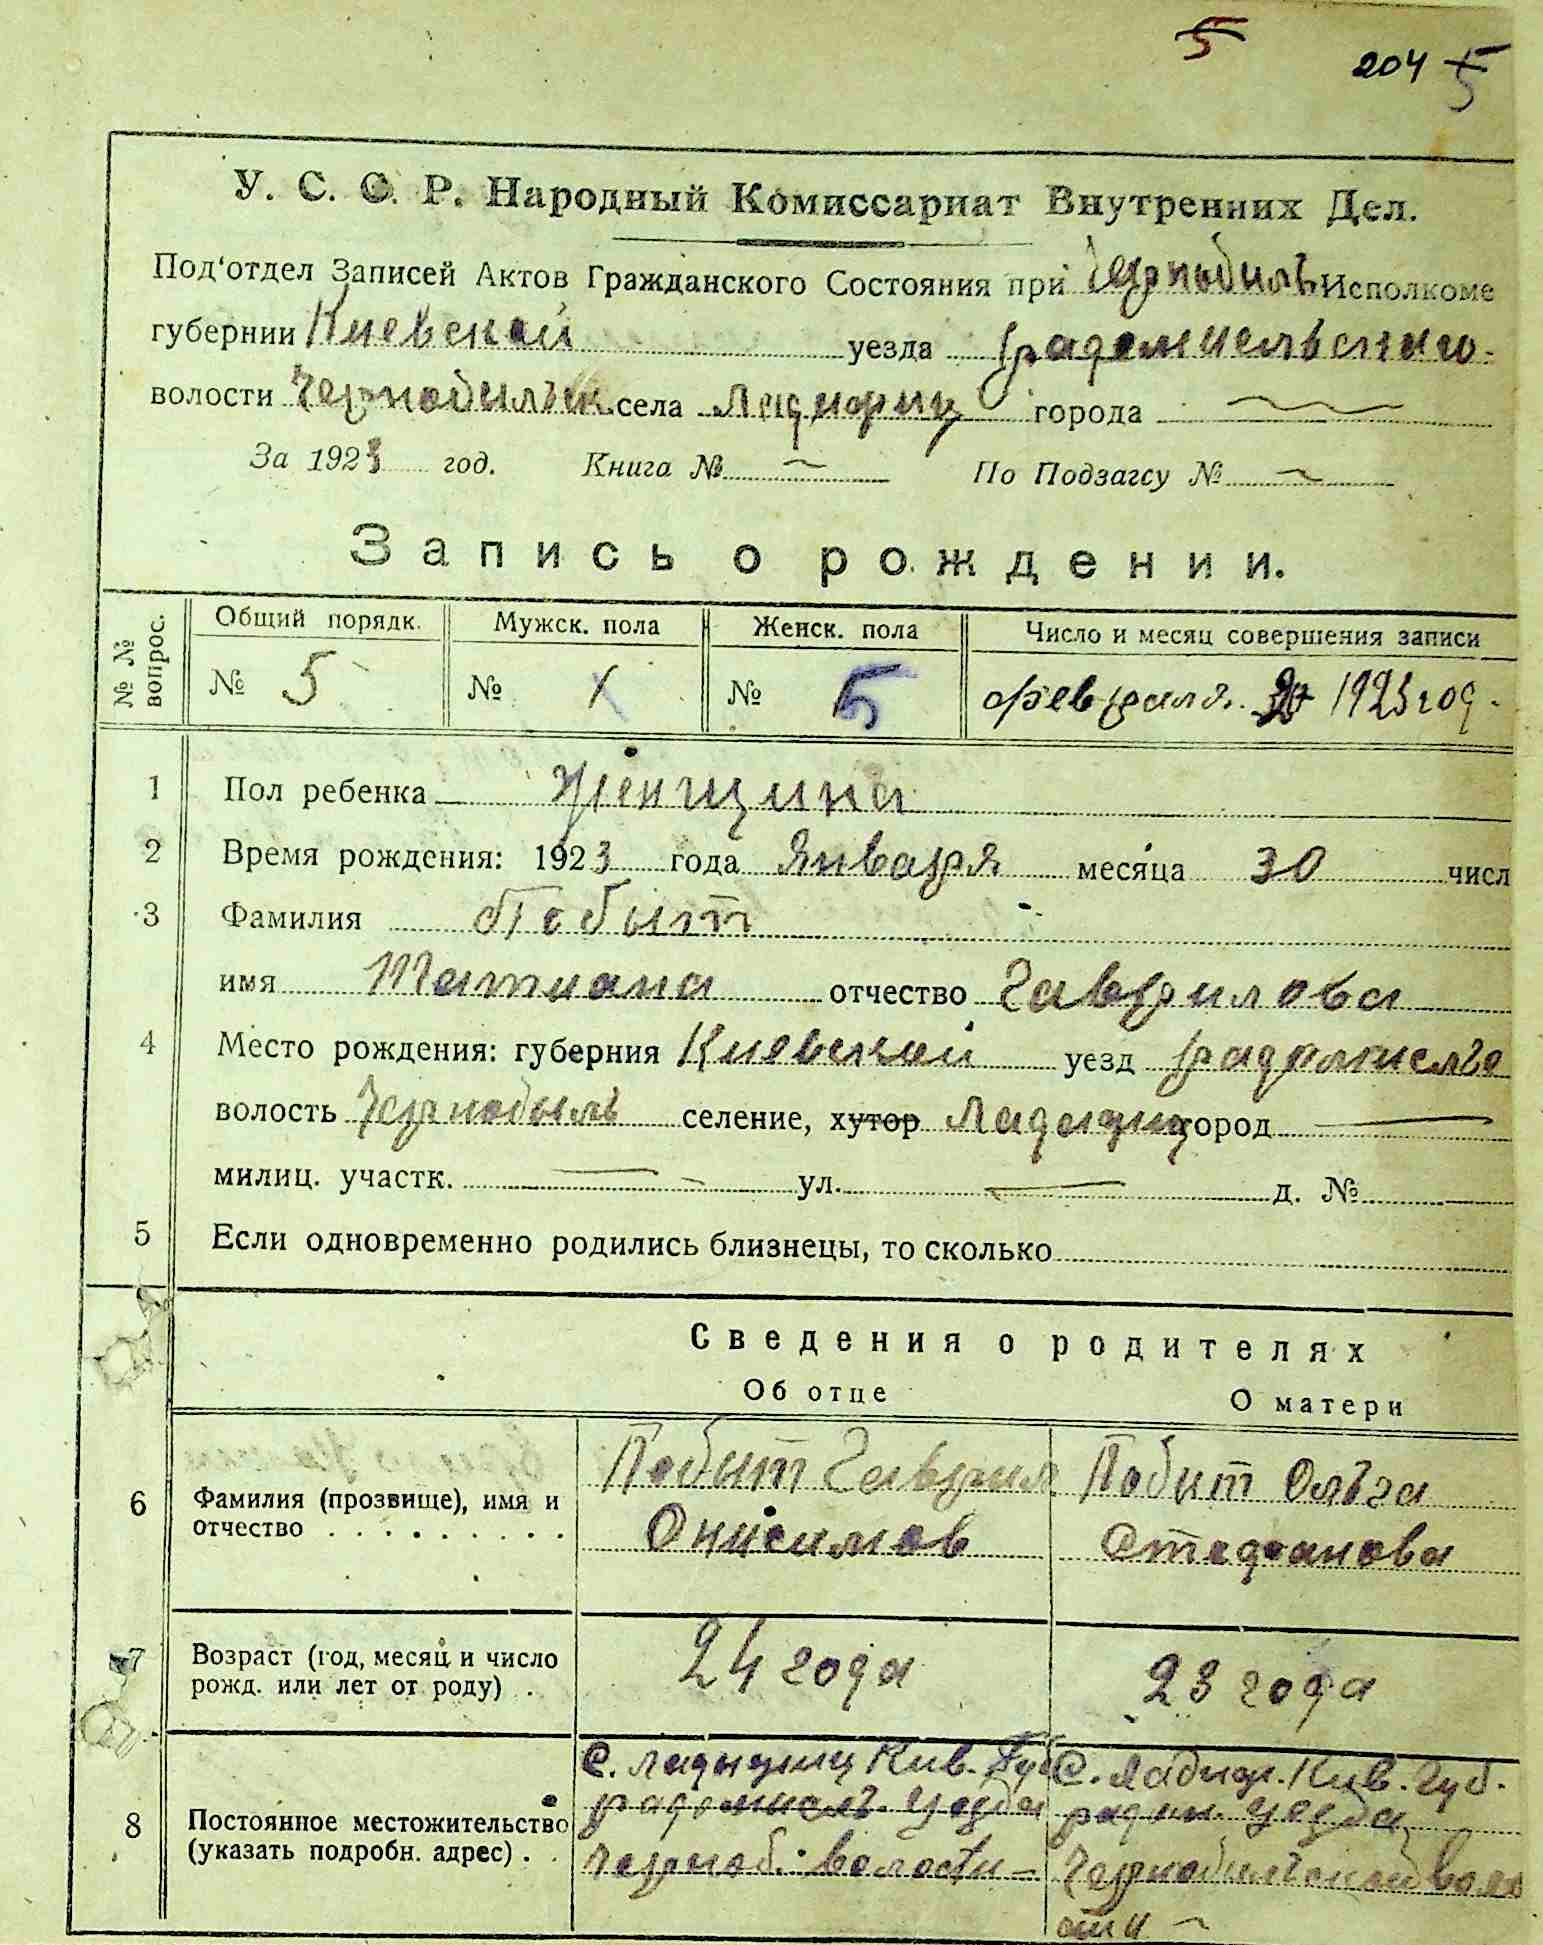 5
204 5
У. С. С. Р. Народный Комиссариат Внутренних Дел.
Под'отдел Записей Актов Гражданского Состояния при Чернобиль Исполкоме
губернии Киевской уезда радомисльского
волости Чернобильск. села Ладижич города
За 1923 год. Книга № По Подзагсу №
Запись о рождении.
№ № вопрос. Общий порядк. Мужск. пола Женск. пола Число и месяц совершения записи
№ 5 № № 5 февраля 1923 год.
1 Пол ребенка женщина
2 Время рождения: 1923 года января месяца 30 числ
3 Фамилия Побыт
имя Татиана отчество Гаврилова
4 Место рождения: губерния Киевской уезд радомисльго
волость Чернобыль селение, хутор Ладижич город
милиц. участк. ул. д. №
5 Если одновременно родились близнецы, то сколько
Сведения о родителях
Об отце О матери
6 Фамилия (прозвище), имя и отчество Побит Гаврил Онисимов Побит Ольга Стефанова
7 Возраст (год, месяц и число рожд. или лет от роду) 24 года 23 года
8 Постоянное местожительство (указать подробн. адрес) С. Ладижич Кив. Губ радомисль. уезда черноб. волости С. Ладиж. Кив. губ. радом. уезда Чернобильской волости